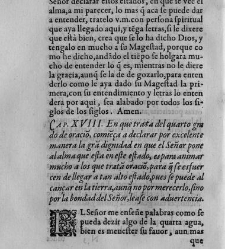 Señor declarar estos estados, en que se vee el
alma, a mi parecer, lo mas q̃ aca se puede dar
a entender, tratelo v.m. con persona spiritual
que aya llegado aqui, y tẽga letras, si le dixere
que està bien, crea que se lo ha dicho Dios, y
tengalo en mucho à su Magestad, porque co
mo he dicho, andãdo el tiẽpo se holgara mu-
cho de entender lo q̃ es, mientras no le diere
la gracia, aunq̃ se la dè de gozarlo, para enten
derlo: como le aya dado su Magestad la pri-
mera, con su entendimiento y letras lo enten
dera por aqui, sea alabado por todos los si-
glos de los siglos. Amen.
CAP. XVIII. En que trata del quarto gra
do de oraciõ, comiẽça a declarar por excelente
manera la grã dignidad en que el Señor pone
al alma que està en este estado, es para animar
mucho a los que tratã oraciõ, para q̃ se esfuer
cen de llegar a tan alto estado, pues se puede al
cançar en la tierra, aunq̃ no por merecerlo, sino
por la bondad del Señor, lease con advertencia.
EL Señor me enseñe palabras como se
pueda dezir algo de la quarta agua,
bien es menester su favor, aun mas
que